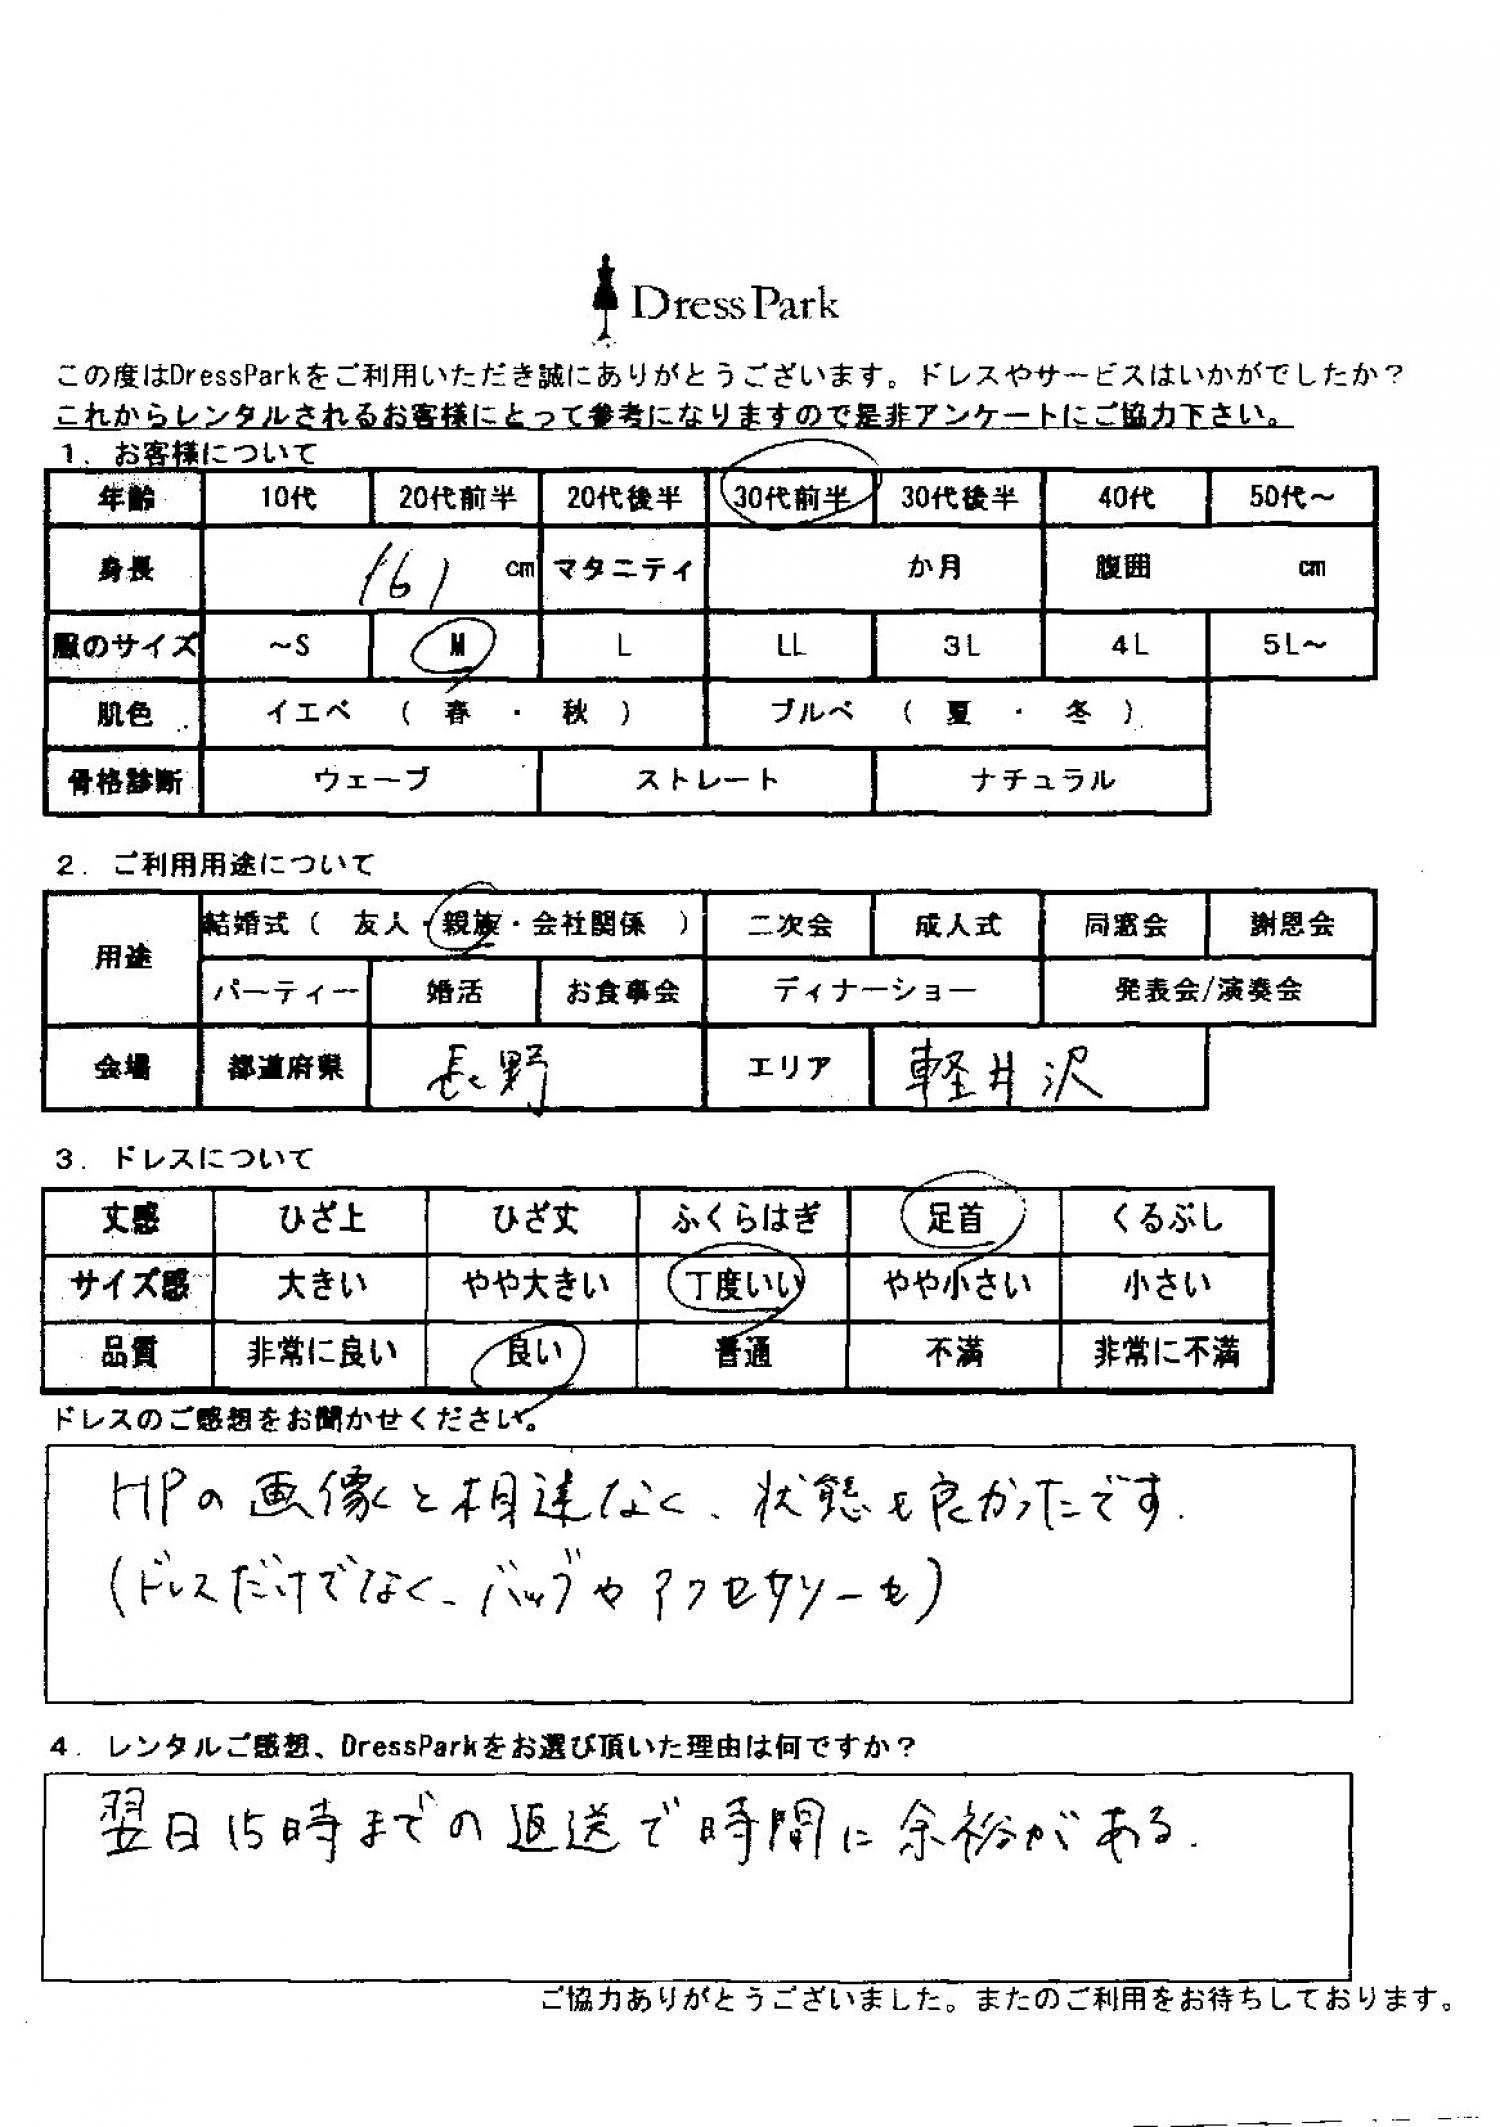 DressPark
この度はDressParkをご利用いただき誠にありがとうございます。ドレスやサービスはいかがでしたか？
これからレンタルされるお客様にとって参考になりますので是非アンケートにご協力下さい。
1．お客様について
年齢 10代 20代前半 20代後半 30代前半 30代後半 40代 50代～
身長 161 cm マタニティ か月 腹囲 cm
服のサイズ ～S M L LL 3L 4L 5L～
肌色 イエベ （ 春 ・ 秋 ） ブルベ （ 夏 ・ 冬 ）
骨格診断 ウェーブ ストレート ナチュラル
2．ご利用用途について
用途 結婚式（ 友人・親族・会社関係 ） 二次会 成人式 同窓会 謝恩会
パーティー 婚活 お食事会 ディナーショー 発表会/演奏会
会場 都道府県 長野 エリア 軽井沢
3．ドレスについて
丈感 ひざ上 ひざ丈 ふくらはぎ 足首 くるぶし
サイズ感 大きい やや大きい 丁度いい やや小さい 小さい
品質 非常に良い 良い 普通 不満 非常に不満
ドレスのご感想をお聞かせください。
HPの画像と相違なく、状態も良かったです.
(ドレスだけでなく、バッグやアクセサリーも)
4．レンタルご感想、DressParkをお選び頂いた理由は何ですか？
翌日15時までの返送で時間に余裕がある.
ご協力ありがとうございました。またのご利用をお待ちしております。